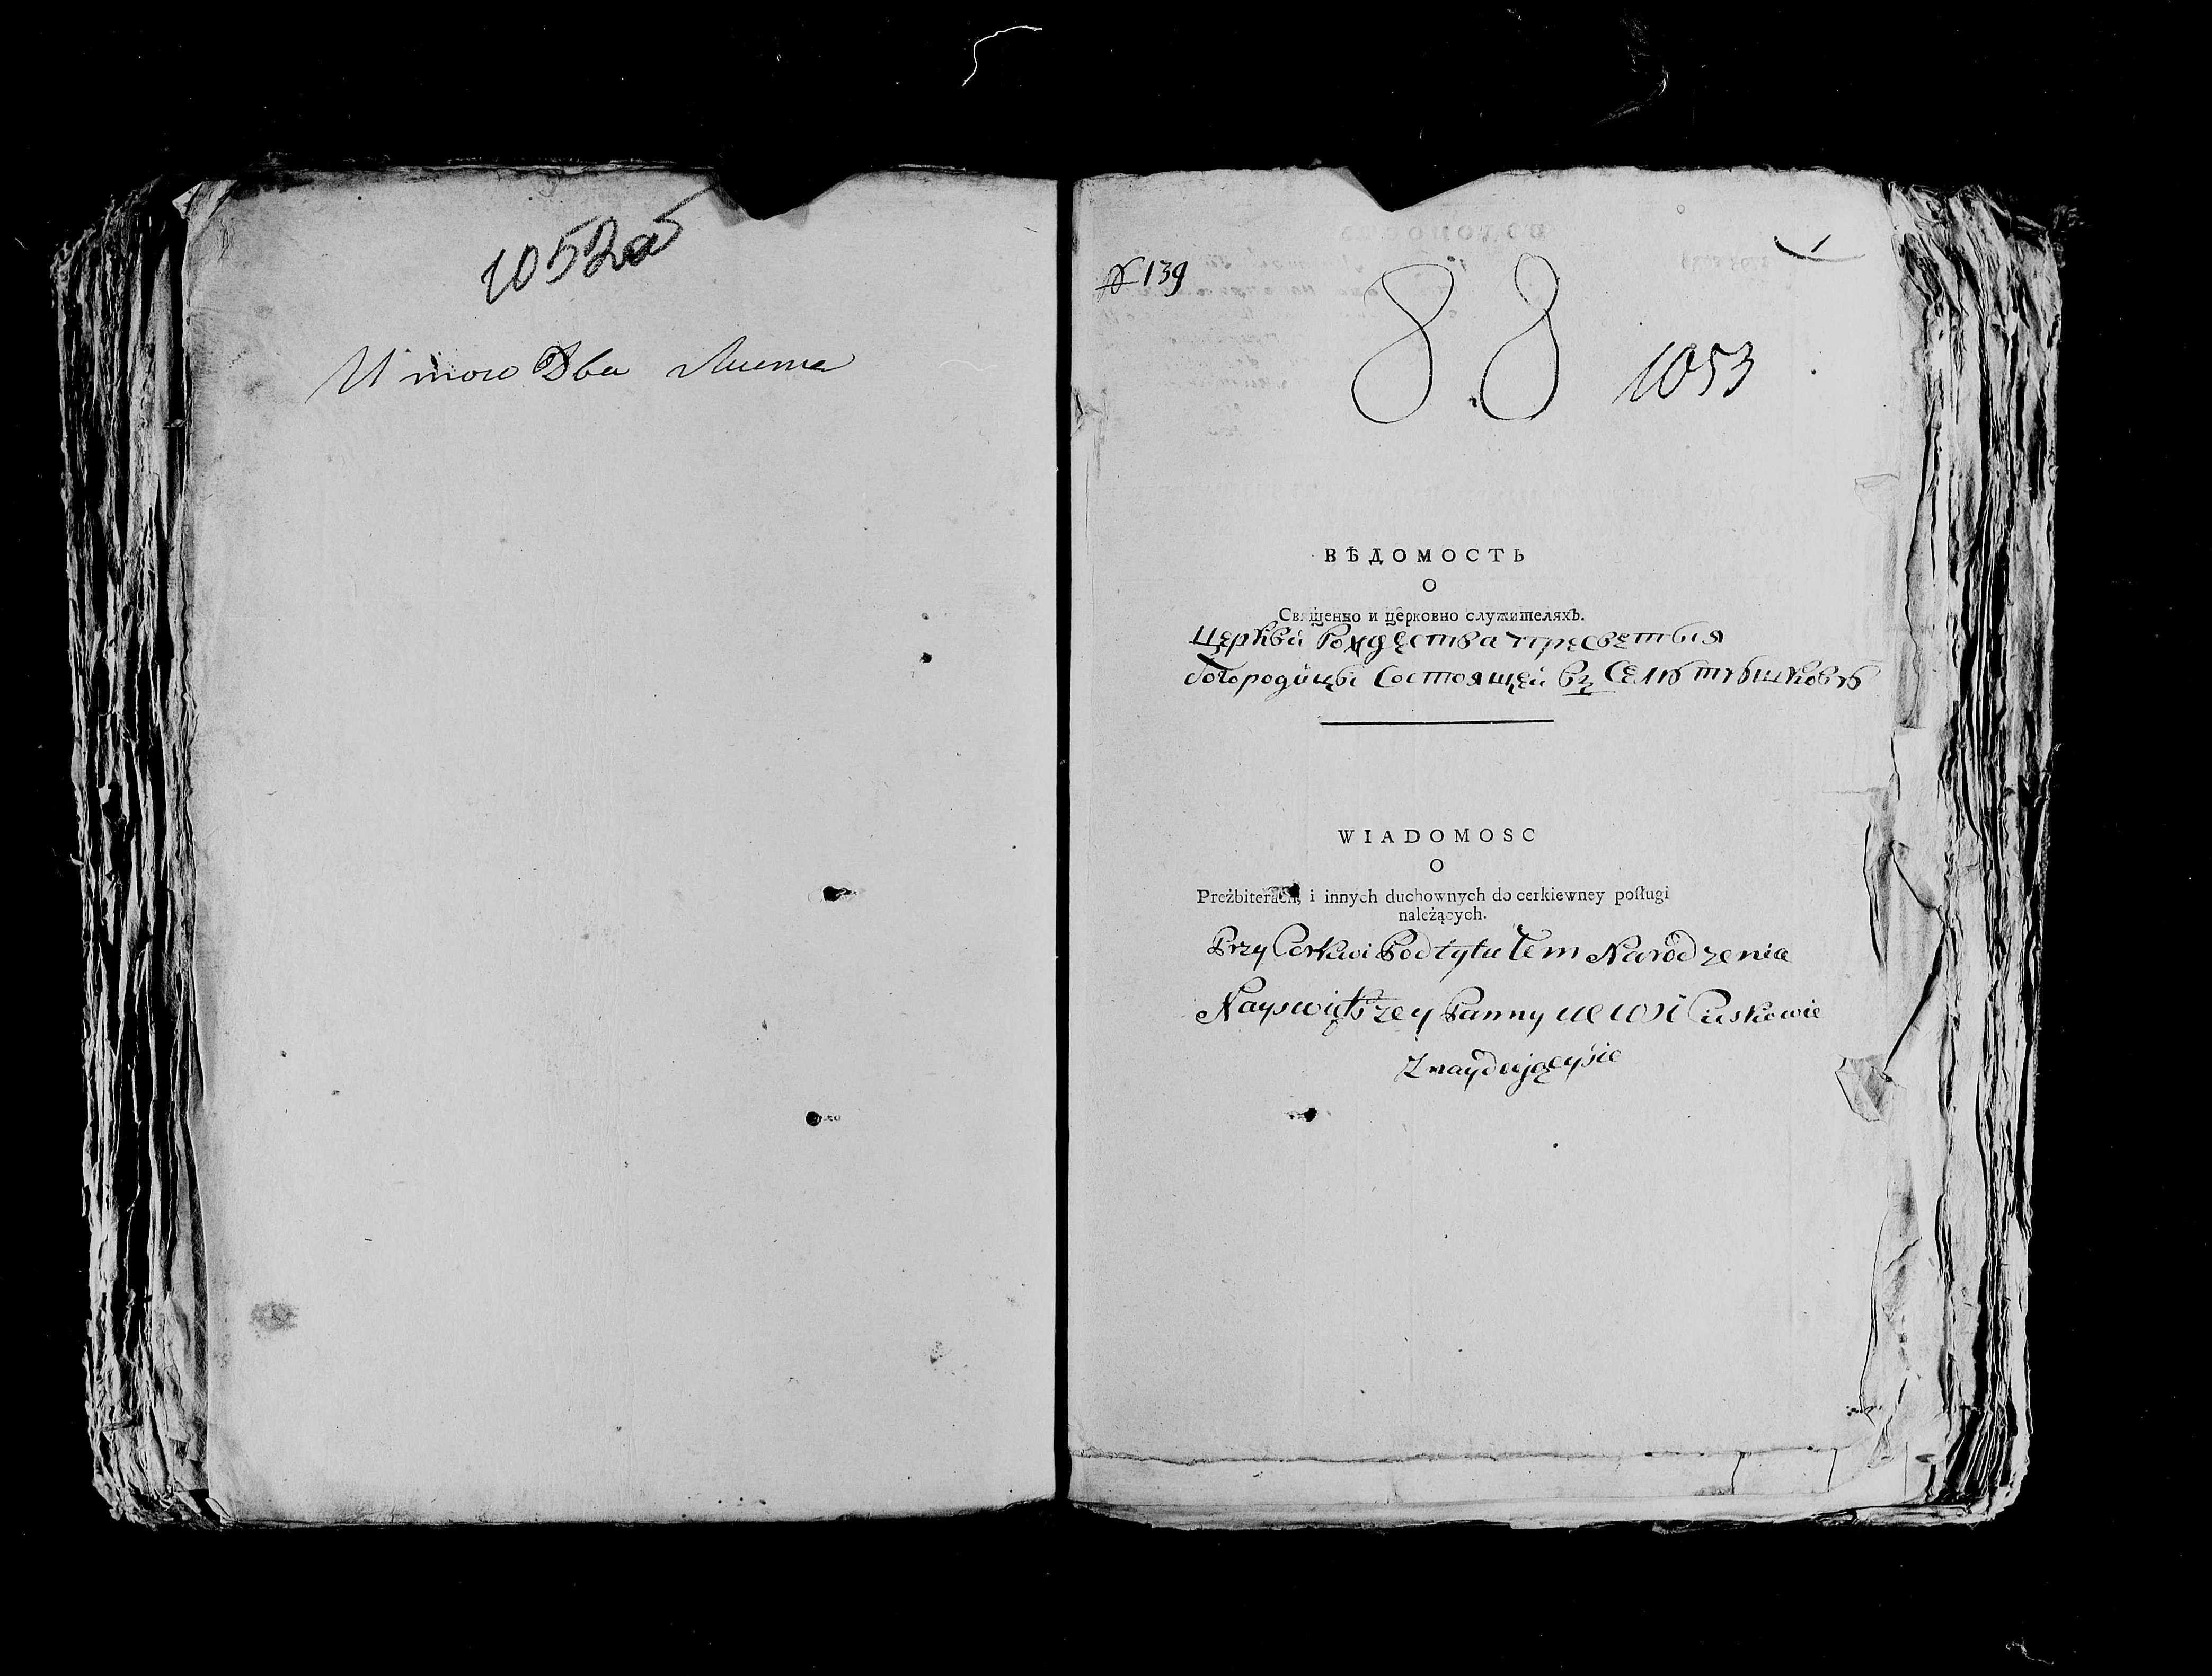 1052аб
Итого Два Листа
№ 139
88
1053
ВѢДОМОСТЬ
О
Священно и церковно служителяхъ.
Церкви Рождества пресветыя
богородицы Состоящей въ Селѣ
WIADOMOSC
O
Preżbiterach, i innych duchownych do cerkiewney posługi
należących.
Przy Cerkwi Pod tytułem Narodzenia
Nayswiętszey Panny we wsi
Znayduiącysie